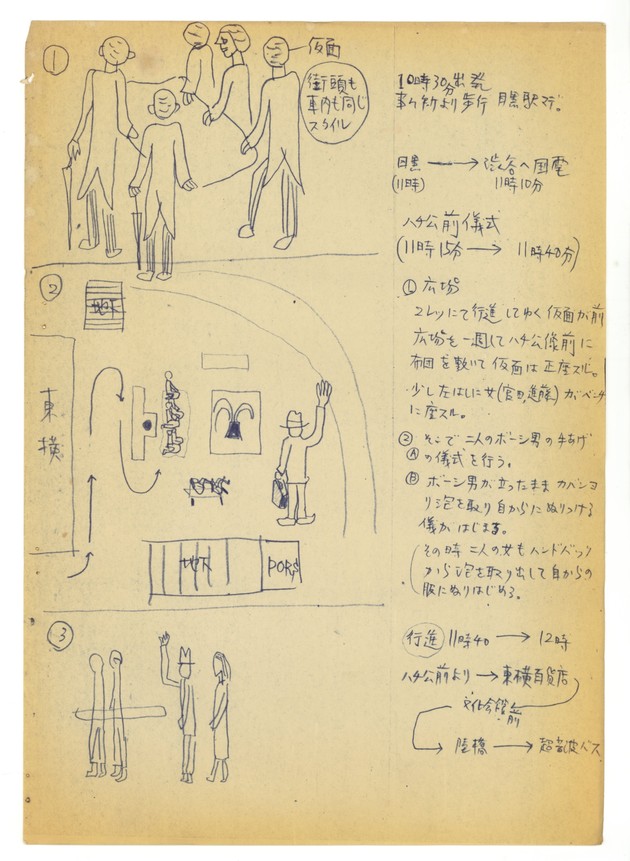 ①
仮面
街頭も
車内も同じ
スタイル
10時30分出発
より歩行 目黒駅マデ。
目黒 → 渋谷へ国電
(11時) 11時10分
ハチ公前儀式
(11時15分 → 11時40分)
① 広場
2レツにて行進してゆく仮面が前
広場を一週してハチ公像前に
布団を敷いて仮面は正座スル。
少し左はしに女(官田,進藤)がベンチ
に座スル。
② そこで二人のボーシ男の手あげ
Ⓐ の儀式を行う。
Ⓑ ボーシ男が立ったまま カバンヨ
リ泡を取り自からにぬりつける
儀がはじまる。
その時 二人の女もハンドバック
から泡を取り出して自からの
服にぬりはじめる。
行進 11時40 → 12時
ハチ公前より → 東横百貨店
文化会館前
陸橋 → 超音波バス
②
地下
東横
地下
③